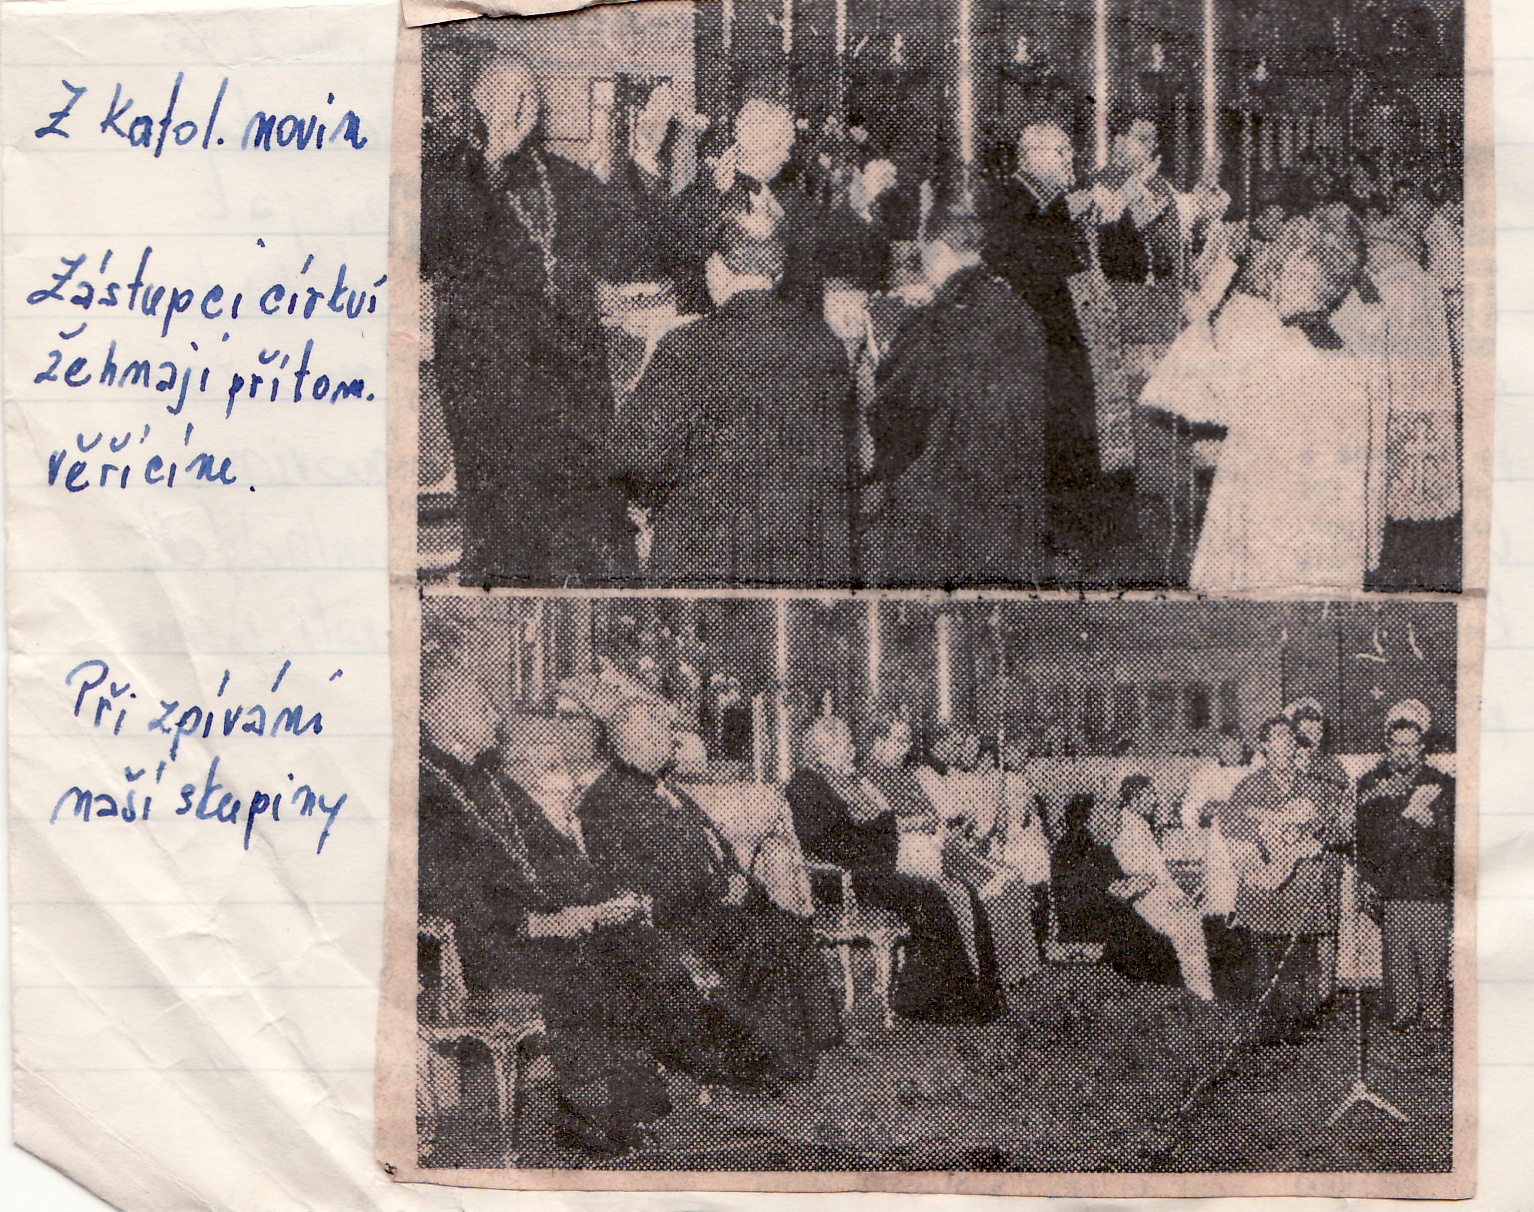 Z Katol. novin
Zástupci církví
žehnají přítom.
věřícím.
Při zpívání
naší skupiny